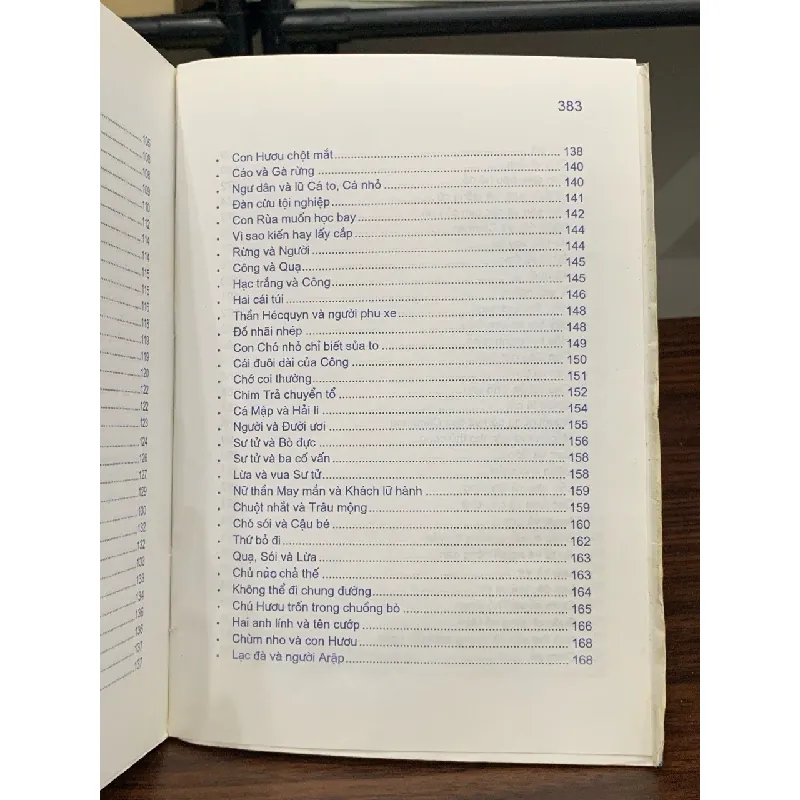 383
. Con Hươu chột mắt 138
. Cáo và Gà rừng 140
. Ngư dân và lũ Cá to, Cá nhỏ 140
. Đàn cừu tội nghiệp 141
. Con Rùa muốn học bay 142
. Vị sao kiến hay lấy cắp 144
. Rừng và Người 144
. Công và Quạ 145
. Hạc trắng và Công 145
. Hai cái túi 146
. Thần Hécquyn và người phu xe 148
. Đồ nhãi nhép 148
. Con Chó nhỏ chỉ biết sủa to 149
. Cái đuôi dài của Công 150
. Chớ coi thường 151
. Chim Trả chuyển tổ 152
. Cá Mập và Hải li 154
. Người và Đười ươi 155
. Sư tử và Bò đực 156
. Sư tử và ba cố vấn 158
. Lừa và vua Sư tử 158
. Nữ thần May mắn và Khách lữ hành 159
. Chuột nhắt và Trâu mộng 159
. Chó sói và Cậu bé 160
. Thứ bỏ đi 162
. Quạ, Sói và Lừa 163
. Chủ nào chả thế 163
. Không thể đi chung đường 164
. Chú Hươu trốn trong chuồng bò 165
. Hai anh lính và tên cướp 166
. Chùm nho và con Hươu 168
. Lạc đà và người Arập 168
106
108
108
109
110
112
114
114
115
115
116
118
119
119
120
122
122
123
124
127
129
130
132
132
133
134
136
136
137
137